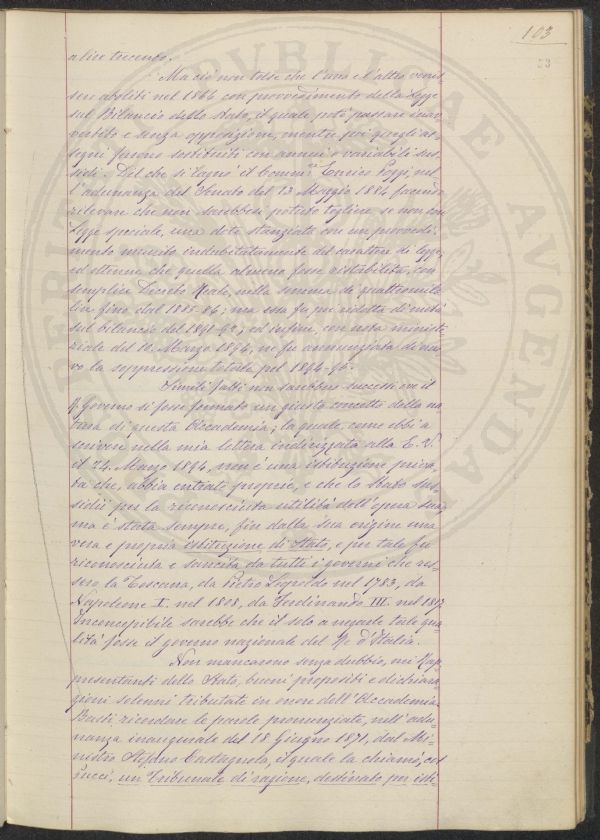 103
a lire trecento.
Ma ciò non tolse che l'uno e l'altro venis-
sero aboliti nel 1884 con provvedimento della Legge
sul Bilancio dello Stato, il quale potè passare inav-
vertito e senza opposizione, mentre poi quegli as-
segni furono sostituiti con annui e variabili sus-
sidi. Del che si lagnò il Comm.re Enrico Poggi, nel-
l'adunanza del Senato del 13 Maggio 1884 facendo
rilevare che non sarebbesi potuto togliere se non con
Legge speciale, una dote stanziata con un provvedi-
mento munito indubitatamente del carattere di legge,
ed ottenne che quella almeno fosse ristabilita, con
semplice Decreto Reale, nella somma di quattromila
lire fino dal 1885-86; ma essa fu poi ridotta di metà
sul bilancio del 1891-92; ed infine, con nota ministe-
riale del 10. Marzo 1894, ne fu annunziata di nuo-
vo la soppressione totale pel 1894-95.
Simili fatti non sarebbero successi, ove il
R. Governo si fosse formato un giusto concetto della na-
tura di questa Accademia; la quale, come ebbi a
scrivere nella mia lettera indirizzata alla E. V.
il 24. Marzo 1894, non è una istituzione priva-
ta che, abbia entrate proprie, e che lo Stato sus-
sidii per la riconosciuta utilità dell'opera sua,
ma è stata sempre, fin dalla sua origine una
vera e propria istituzione di Stato, e per tale fu
riconosciuta e sancita da tutti i governi che res-
sero la Toscana, da Pietro Leopoldo nel 1783, da
Napoleone I. nel 1808, da Ferdinando III. nel 1817.
Inconcepibile sarebbe che il solo a negarle tale qua-
lità fosse il governo nazionale del Re d'Italia.
Non mancarono senza dubbio, nei Rap-
presentanti dello Stato, buoni propositi e dichiara-
zioni solenni tributate in onore dell'Accademia.
Basti ricordare le parole pronunziate, nell'adu-
nanza inaugurale del 18 Giugno 1871, dal Mi-
nistro Stefano Castagnola, il quale la chiamò, col
Pucci, un Tribunale di ragione, destinato per isti-